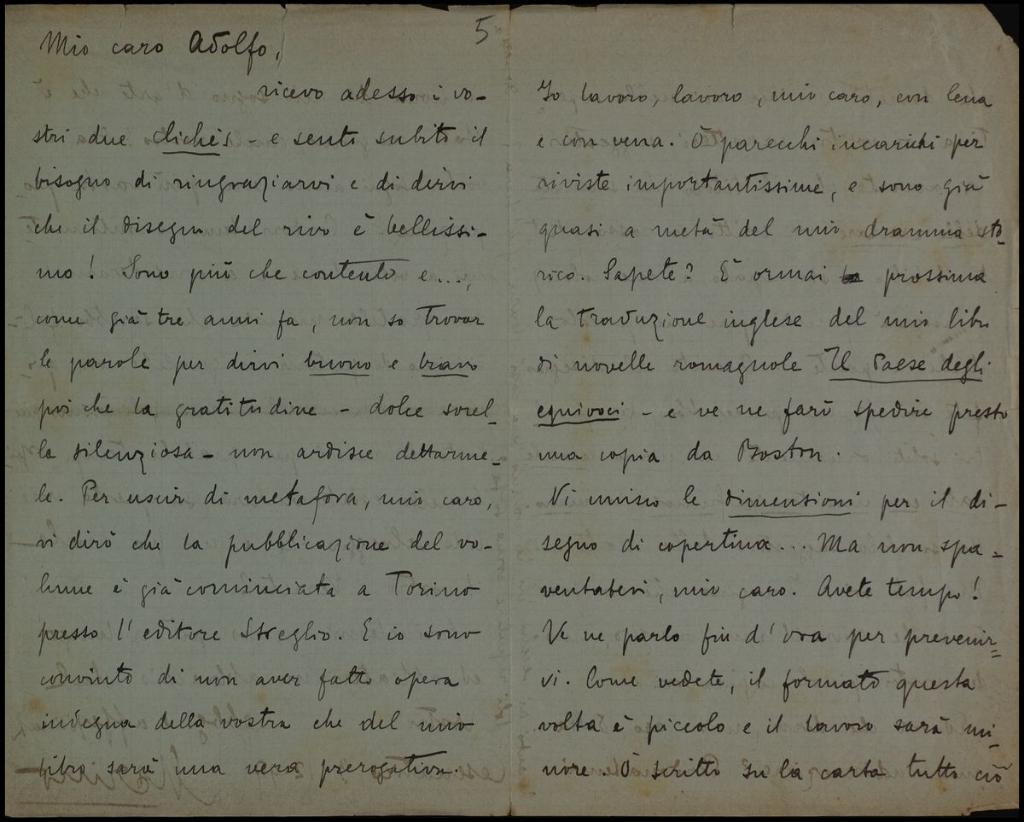 5
Mio caro Adolfo,
ricevo adesso i vo-
stri due clichés - e sento subito il
bisogno di ringraziarvi e di dirvi
che il disegno del rivo è bellissi-
mo! Sono più che contento e...,
come già tre anni fa, non so trovar
le parole per dirvi buono e bravo
poi che la gratitudine - dolce sorel-
la silenziosa - non ardisce dettarme-
le. Per uscir di metafora, mio caro,
vi dirò che la pubblicazione del vo-
lume è già cominciata a Torino
presso l'editore Streglio. E io sono
convinto di non aver fatto opera
indegna della vostra che del mio
libro sarà una vera prerogativa.
Io lavoro, lavoro, mio caro, con lena
e con vena. Ò parecchi incarichi per
riviste importantissime, e sono già
quasi a metà del mio dramma sto-
rico. Sapete? È ormai prossima
la traduzione inglese del mio libro
di novelle romagnole Il Paese degli
equivoci - e ve ne farò spedire presto
una copia da Boston.
Vi unisco le dimensioni per il di-
segno di copertina... Ma non spa-
ventatevi, mio caro. Avete tempo!
Ve ne parlo fin d'ora per prevenir-
vi. Come vedete, il formato questa
volta è piccolo e il lavoro sarà mi-
nore. Ò scritto su la carta tutto ciò